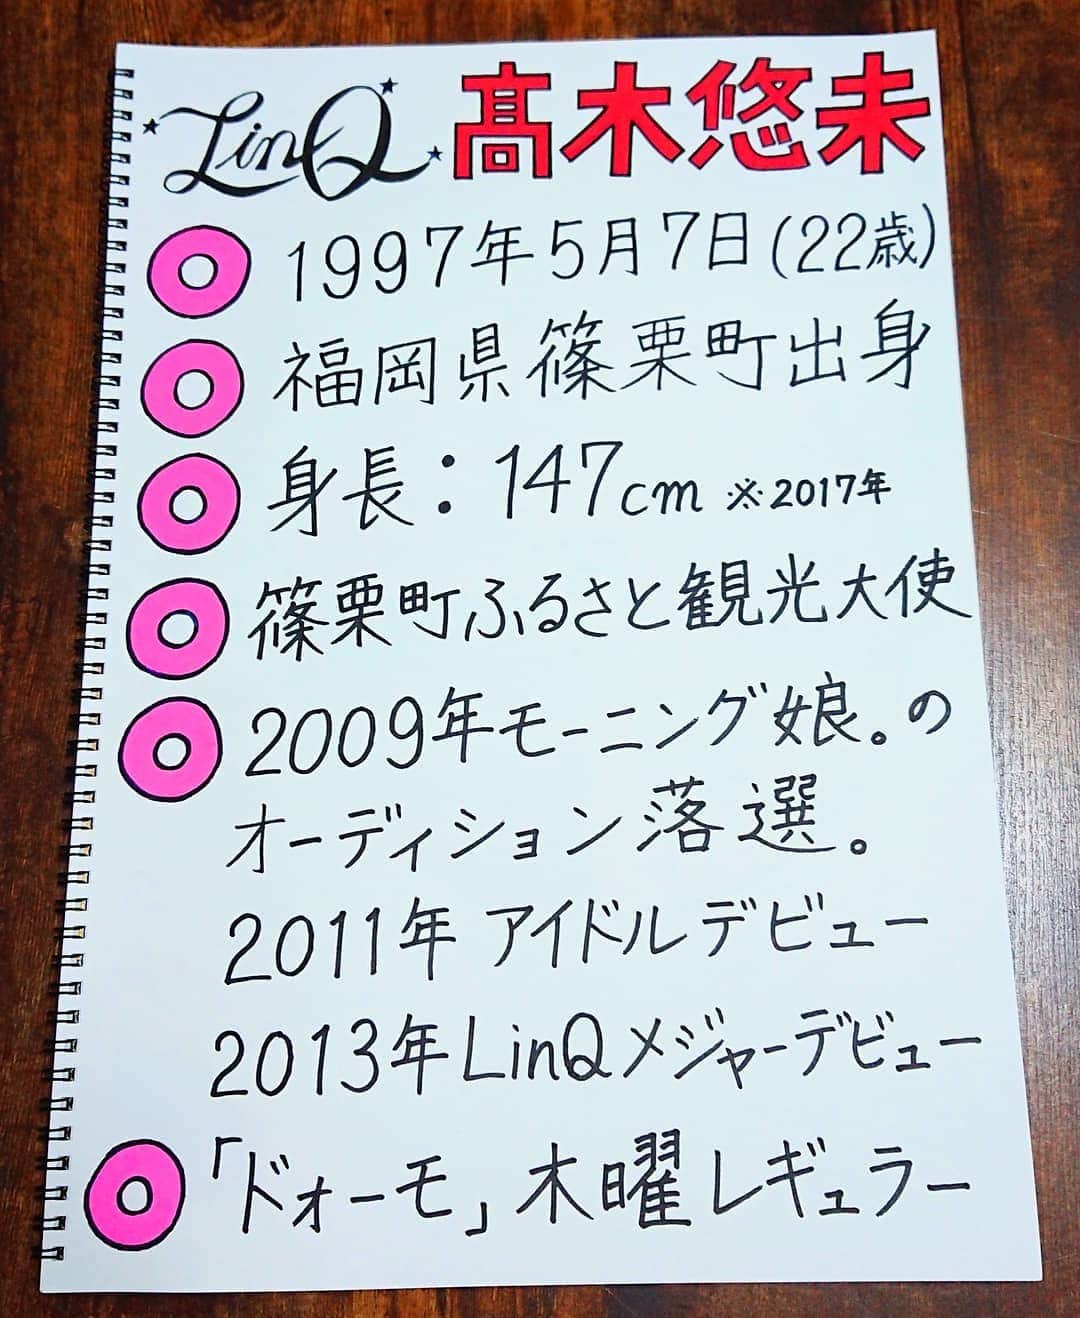 LinQ 髙木悠未
1997年5月7日(22歳)
福岡県篠栗町出身
身長：147cm ※2017年
篠栗町ふるさと観光大使
2009年モーニング娘。の
オーディション落選。
2011年 アイドルデビュー
2013年LinQメジャーデビュー
「ドォーモ」木曜レギュラー